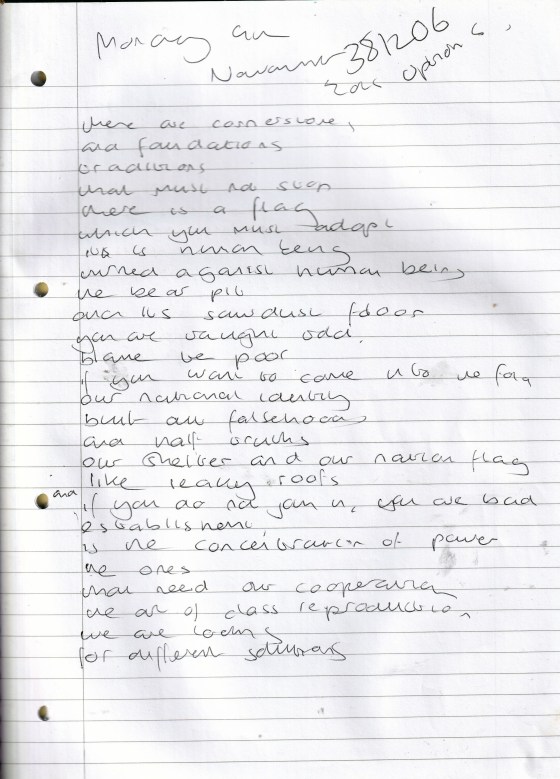 Monday
381206
Option
there are cornerstone,
and foundations
traditions
that must not stop
there is a flag
which you must adopt
its is human being
turned against human being
the bear pit
and its sawdust floor
you are taught
blame the poor
if you want to come into the fold
our national identity
built on falsehoods
and half truths
our shelter and our nation flag
like leaky roofs
and if you do not join in, you are bad
establishment
is the concentration of power
the ones
that need our cooperation
the art of class reproduction,
we are looking
for different solutions